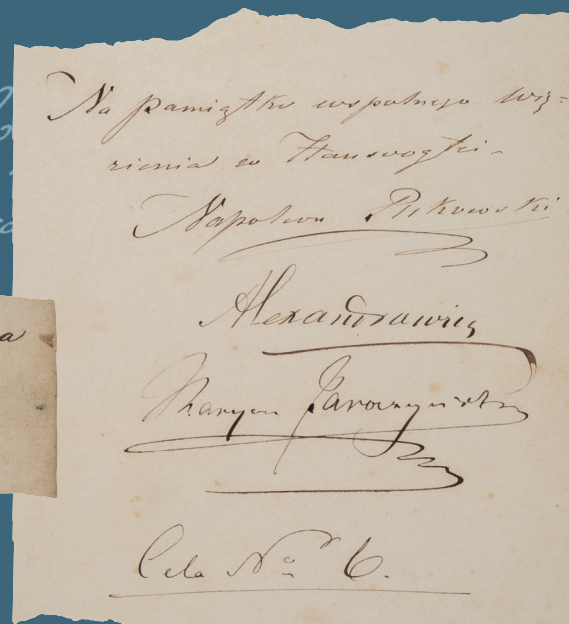 Na pamiątkę wspólnego wię=
zienia w Hausvogtei -
Napoleon
Alexandrowicz
Maryan Jaroczyński
Cela No 6.
a